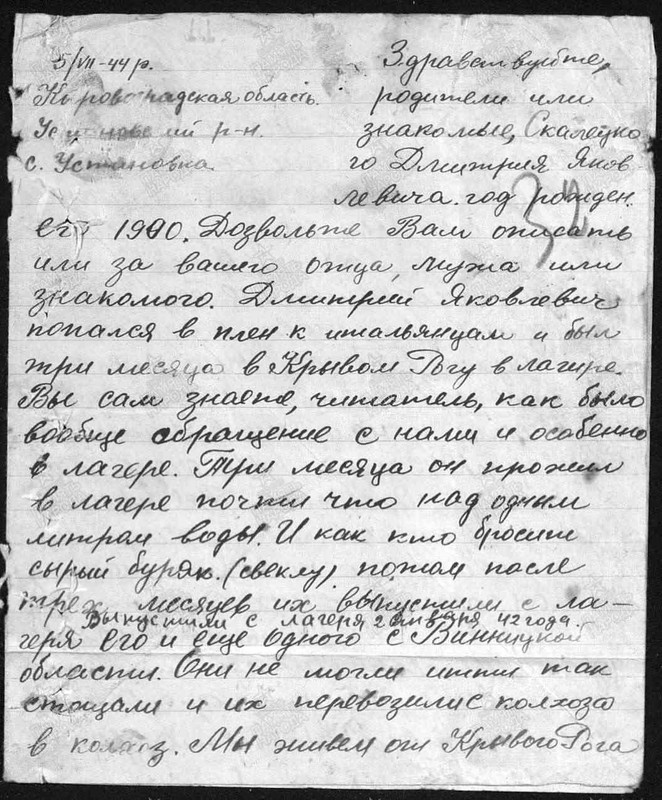 5/VII-44 р.
Кировоградская область.
Устиновский р-н.
с. Устиновка
Здравствуйте,
родители или
знакомые, Скалецко
го Дмитрия Яков
левича. год рожден.
32
его 1900. Дозвольте Вам описать
или за вашего отца, мужа или
знакомого. Дмитрий Яковлевич
попался в плен к итальянцам и был
три месяца в Крывом Рогу в лагире.
Вы сам знаете, читатель, как было
вообще обращение с нами и особенно
в лагере. Три месяца он прожил
в лагере почти что над одним
литрам воды. И как кто бросит
сырый буряк. (свеклу) потом после
трех месяцев их выпустили с ла-
Выпустили с лагеря 2 января 42 года.
геря его и еще одного с Винницкой
области. Они не могли итти так
стощали и их перевозили с колхоза
в колхоз. Мы живем от Крывого Рога